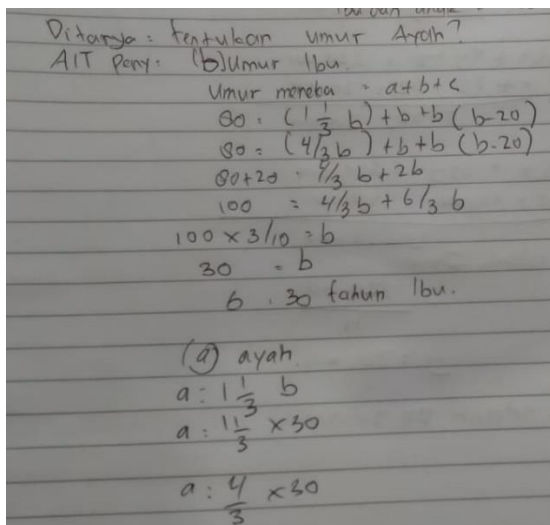 Ditanya = Tentukan umur Ayah?
AIT Peny: (b) Umur Ibu
Umur mereka = a+b+c
80 = (1 1/3 b) + b + b (b-20)
80 = (4/3 b) + b + b (b-20)
80+20 = 4/3 b + 2b
100 = 4/3 b + 6/3 b
100 x 3/10 = b
30 = b
b = 30 tahun Ibu.
(a) ayah
a = 1 1/3 b
a = 1 1/3 x 30
a = 4/3 x 30